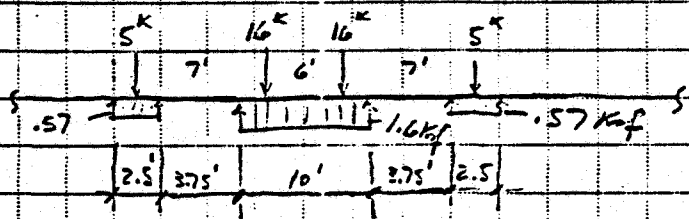 5ᴷ 16ᴷ 16ᴷ 5ᴷ
7' 6' 7'
.57 1.6 Ksf .57 Ksf
2.5' 3.75' 10' 3.75' 2.5